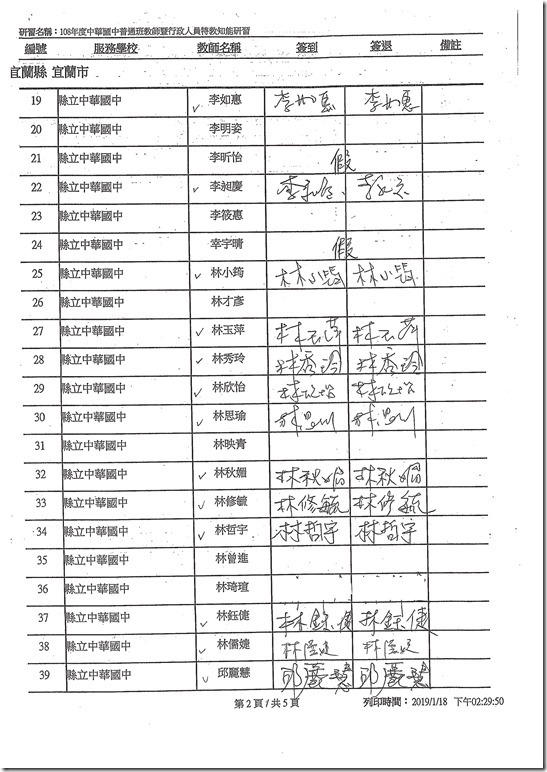 研習名稱：108年度中華國中普通班教師暨行政人員特教知能研習
編號 服務學校 教師名稱 簽到 簽退 備註
宜蘭縣 宜蘭市
19 縣立中華國中 ✓ 李如惠 李如惠 李如惠
20 縣立中華國中 李明姿
21 縣立中華國中 李昕怡 假
22 縣立中華國中 ✓ 李昶慶
23 縣立中華國中 李筱惠
24 縣立中華國中 幸宇晴 假
25 縣立中華國中 ✓ 林小筠 林小筠 林小筠
26 縣立中華國中 林才彥
27 縣立中華國中 ✓ 林玉萍 林玉萍 林玉萍
28 縣立中華國中 ✓ 林秀玲 林秀玲 林秀玲
29 縣立中華國中 ✓ 林欣怡 林欣怡 林欣怡
30 縣立中華國中 ✓ 林思瑜
31 縣立中華國中 林映青
32 縣立中華國中 ✓ 林秋媚 林秋媚 林秋媚
33 縣立中華國中 ✓ 林修毓 林修毓 林修毓
34 縣立中華國中 ✓ 林哲宇 林哲宇 林哲宇
35 縣立中華國中 林曾進
36 縣立中華國中 林琦瑄
37 縣立中華國中 ✓ 林鈺倢
38 縣立中華國中 ✓ 林僑婕
39 縣立中華國中 ✓ 邱麗慧 邱麗慧 邱麗慧
第 2 頁 / 共 5 頁 列印時間：2019/1/18 下午02:29:50